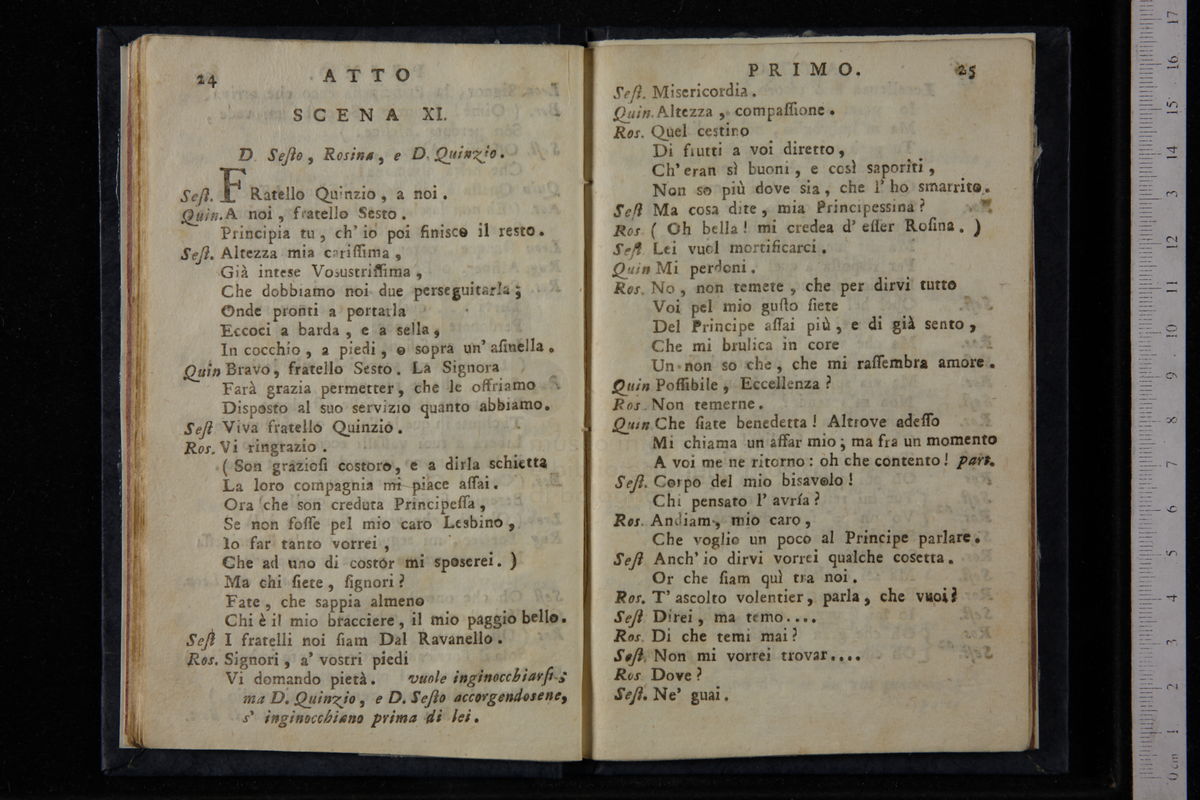 24 ATTO
SCENA XI.
D. Seſto, Rosina, e D. Quinzio.
Seſt. FRatello Quinzio, a noi.
Quin. A noi, fratello Sesto.
Principia tu, ch' io poi finisco il resto.
Seſt. Altezza mia cariſſima,
Già intese Vosustriſſima,
Che dobbiamo noi due perseguitarla;
Onde pronti a portarla
Eccoci a barda, e a sella,
In cocchio, a piedi, o sopra un' aſinella.
Quin Bravo, fratello Sesto. La Signora
Farà grazia permetter, che le offriamo
Disposto al suo servizio quanto abbiamo.
Seſt Viva fratello Quinzio.
Ros. Vi ringrazio.
(Son grazioſi costoro, e a dirla schietta
La loro compagnia mi piace aſſai.
Ora che son creduta Principeſſa,
Se non foſſe pel mio caro Lesbino,
Io far tanto vorrei,
Che ad uno di costor mi sposerei.)
Ma chi ſiete, ſignori?
Fate, che sappia almeno
Chi è il mio bracciere, il mio paggio bello.
Seſt I fratelli noi ſiam Dal Ravanello.
Ros. Signori, a' vostri piedi
Vi domando pietà. vuole inginocchiarſi;
ma D. Quinzio, e D. Seſto accorgendosene,
s' inginocchiano prima di lei.
PRIMO. 25
Seſt. Misericordia.
Quin. Altezza, compaſſione.
Ros. Quel cestino
Di frutti a voi diretto,
Ch' eran sì buoni, e così saporiti,
Non so più dove sia, che l' ho smarrito.
Seſt Ma cosa dite, mia Principessina?
Ros. (Oh bella! mi credea d' eſſer Roſina.)
Seſt Lei vuol mortificarci.
Quin Mi perdoni.
Ros. No, non temete, che per dirvi tutto
Voi pel mio guſto ſiete
Del Principe aſſai più, e di già sento,
Che mi brulica in core
Un non so che, che mi raſſembra amore.
Quin Poſſibile, Eccellenza?
Ros. Non temerne.
Quin Che ſiate benedetta! Altrove adeſſo
Mi chiama un affar mio; ma fra un momento
A voi me ne ritorno: oh che contento! part.
Seſt. Corpo del mio bisavolo!
Chi pensato l' avría?
Ros. Andiam, mio caro,
Che voglio un poco al Principe parlare.
Seſt Anch' io dirvi vorrei qualche cosetta.
Or che ſiam quì tra noi.
Ros. T' ascolto volentier, parla, che vuoi?
Seſt Direi, ma temo....
Ros. Di che temi mai?
Seſt. Non mi vorrei trovar....
Ros Dove?
Seſt. Ne' guai.